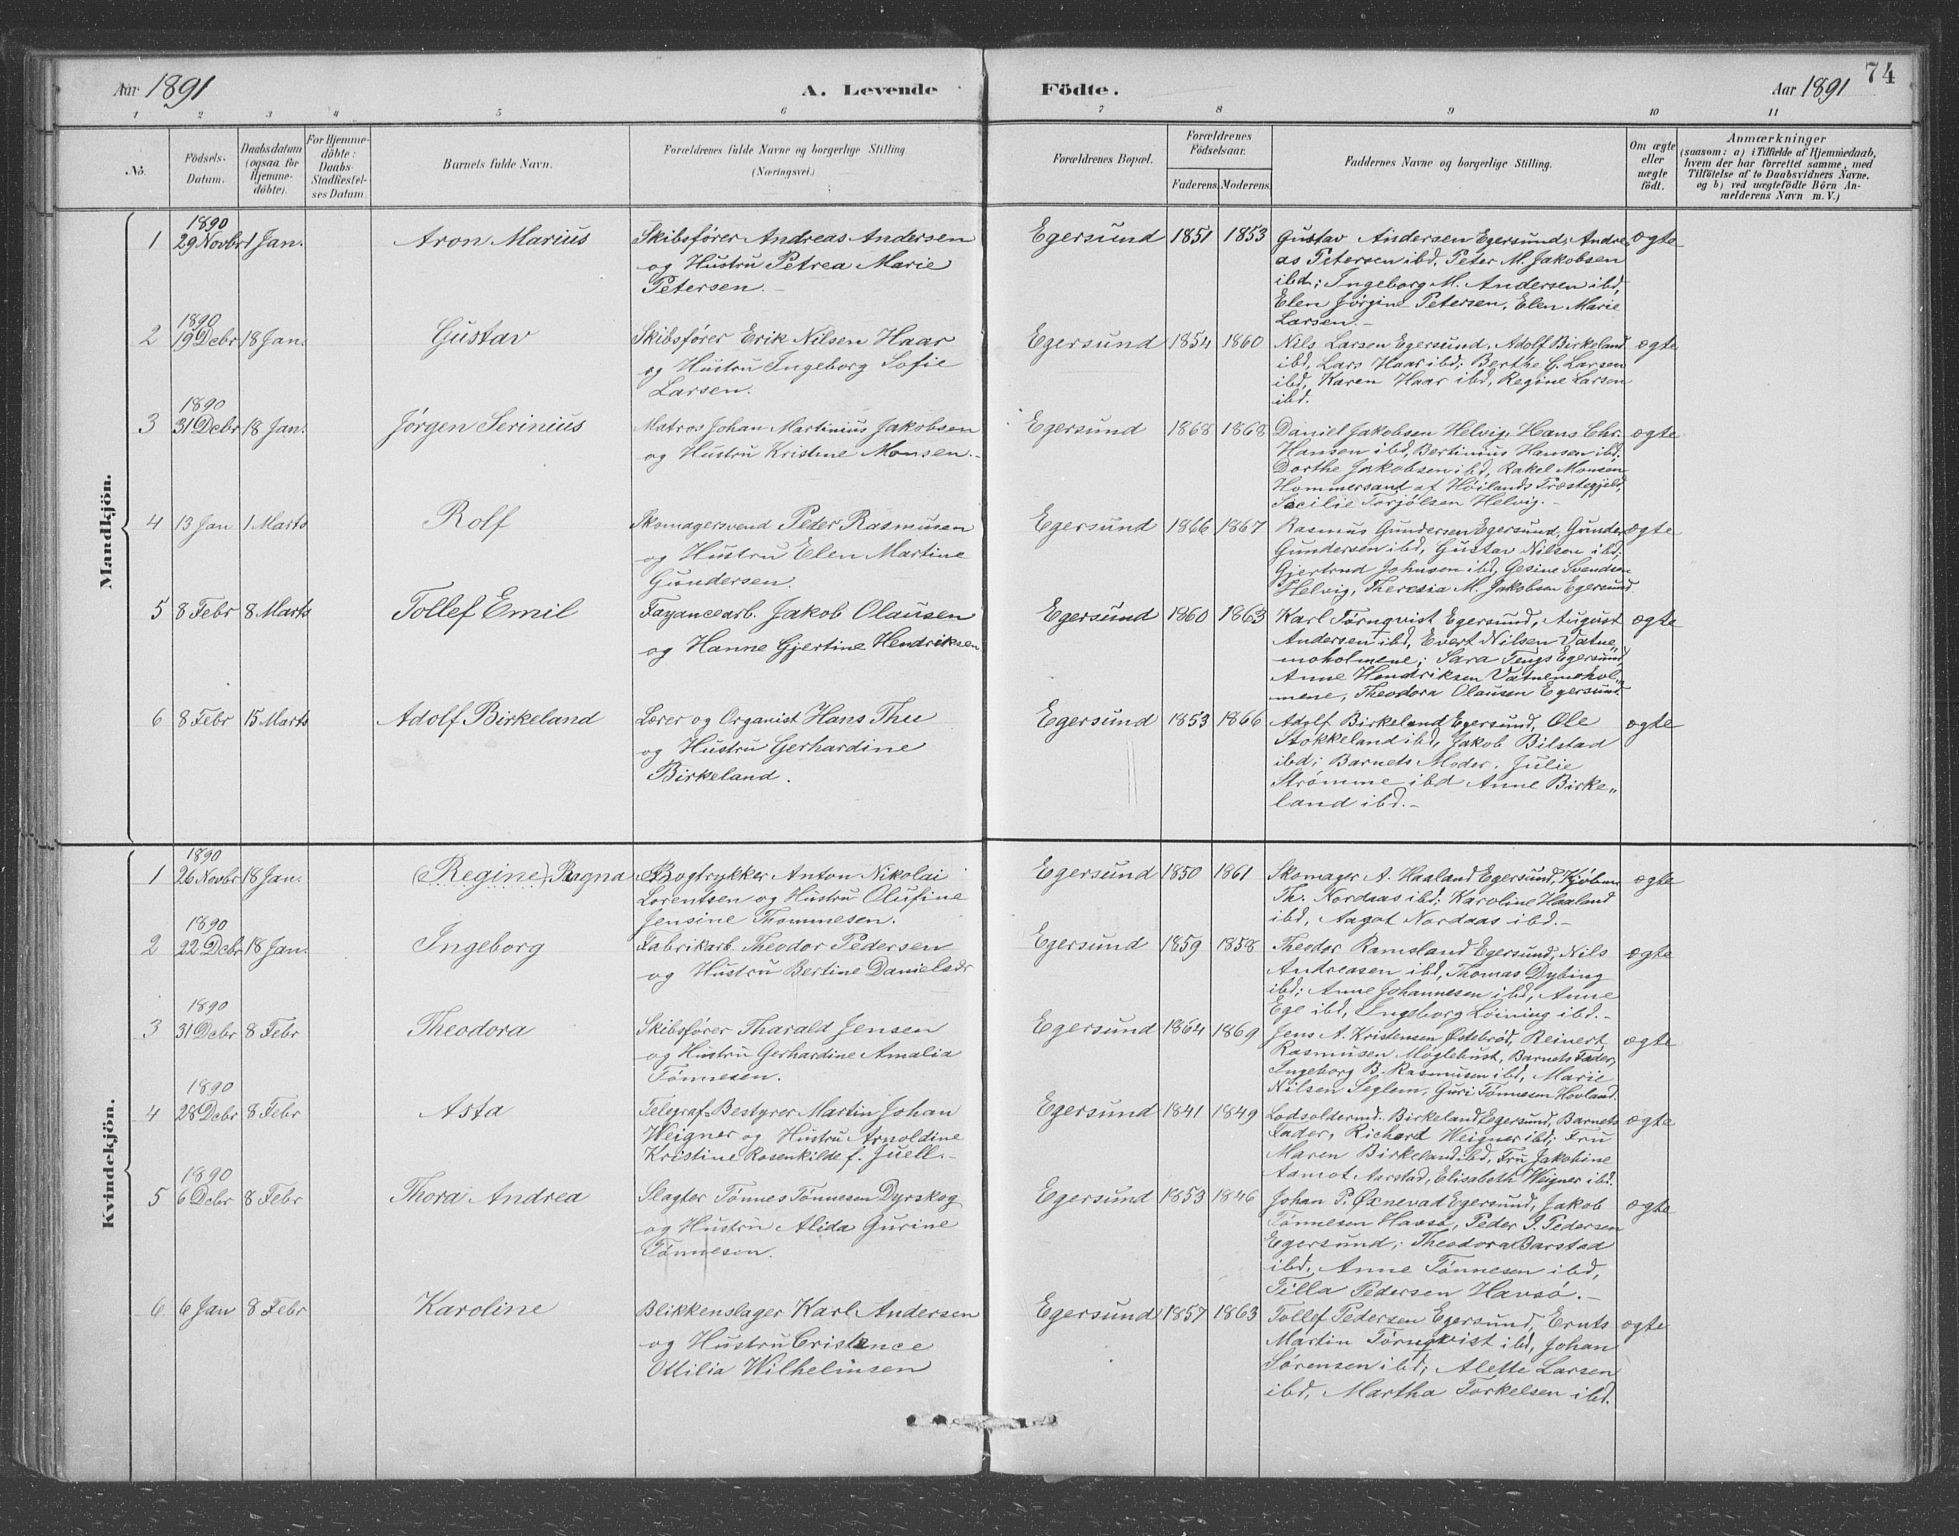 74
Aar 1891
A. Levende
Födte.
Aar 1891
1
2
3
4
5
6
7
8
9
10
11
No.
Födsels-
Datum.
Daabsdatum
(ogsaa for
Hjemme-
döbte).
For Hjemme-
döbte:
Daabs-
Stadfæstel-
ses Datum.
Barnets fulde Navn.
Forældrenes fulde Navne og borgerlige Stilling
(Næringsvei.)
Forældrenes Bopæl.
Forældrenes
Födselsaar.
Faderens.
Moderens.
Faddernes Navne og borgerlige Stilling.
Om ægte
eller
uægte
födt.
Anmærkninger
(saasom: a) i Tilfælde af Hjemmedaab,
hvem der har forrettet samme, med
Tilföielse af to Daabsvidners Navne,
og b) ved uægtefödte Börn An-
melderens Navn m. V.)
Mandkjön.
1890
1 29 Novbr 1 Jan. Aron Marius Skibsfører Andreas Andersen
og Hustru Petrea Marie
Petersen.-
Egersund 1851 1853 Gustav Andersen Egersund, Andre-
as Petersen ibd. Peter M. Jakobsen
ibd; Ingeborg M. Andersen ibd,
Elen Jørgine Petersen, Elen Marie
Larsen.-
ægte
1890
2 19 Debr 18 Jan. Gustav Skibsfører Erik Nilsen Haar
og Hustru Ingeborg Sofie
Larsen.
Egersund 1854 1860 Nils Larsen Egersund, Adolf Birkeland
ibd, Lars Haar ibd; Berthe G. Larsen
ibd, Karen Haar ibd, Regine Larsen
ibd.
ægte
1890
3 31 Debr 18 Jan. Jørgen Serinius Matros Johan Martinius Jakobsen
og Hustru Kristine Monsen.-
Egersund 1868 1868 Daniel Jakobsen Helvig, Hans Chr.
Hansen ibd, Bertinius Hansen ibd;
Dorthe Jakobsen ibd, Rakel Monsen
Hommersand af Høilands Præstegjeld,
Secilie Torjølsen Helvig.-
ægte
4 13 Jan 1 Marts Rolf Skomagersvend Peder Rasmusen
og Hustru Elen Martine
Gundersen.
Egersund 1866 1867 Rasmus Gundersen Egersund, Gunder
Gundersen ibd, Gustav Nilsen ibd;
Gjertrud Johnsen ibd, Gesine Svendsen
Helvig, Theresia M. Jakobsen Egersund
ægte
5 8 Febr 8 Marts Tollef Emil Fayancearb. Jakob Olausen
og Hanne Gjertine Hendriksen
Egersund 1860 1863 Karl Tørnqvist Egersund, August
Andersen ibd, Evert Nilsen Vatne„
moholmene; Sara Tengs Egersund,
Anne Hendriksen Vatnemohol„
mene, Theodora Olausen Egersund.
ægte
6 8 Febr 15 Marts Adolf Birkeland Lærer og Organist Hans Thu
og Hustru Gerhardine
Birkeland.
Egersund 1853 1866 Adolf Birkeland Egersund, Ole
Stokkeland ibd, Jakob Bilstad
ibd; Barnets Moder. Julie
Strømme ibd Anne Birke„
land ibd.-
ægte
Kvindekjön.
1890
1 26 Novbr 18 Jan. (Regine) Ragna Bogtrykker Anton Nikolai
Lorentsen og Hustru Olufine
Jensine Thommesen.
Egersund 1850 1861 Skomager A. Haaland Egersund, Kjøbm
Th. Nordaas ibd; Karoline Haaland
ibd, Aagot Nordaas ibd.-
ægte
1890
2 22 Debr 18 Jan. Ingeborg Fabrikarb. Theodor Pedersen
og Hustru Bertine Danielsdr
Egersund 1859 1858 Theodor Ramsland Egersund, Nils
Andreasen ibd, Thomas Dybing
ibd; Anne Johannesen ibd, Anne
Ege ibd, Ingeborg Løining ibd.-
ægte
1890
3 31 Debr 8 Febr Theodora Skibsfører Tharald Jensen
og Hustru Gerhardine Amalia
Tønnesen.
Egersund 1864 1869 Jens A. Kristensen Østebrød, Reinert
Rasmusen Møglehust, Barnets Fader,
Ingeborg B. Rasmusen ibd, Marie
Nilsen Seglem, Guri Tønnesen Hovland.
ægte
1890
4 28 Debr 8 Febr Asta Telegraf-Bestyrer Martin Johan
Weigner og Hustru Arnoldine
Kristine Rosenkilde f. Juell.-
Egersund 1841 1849 Lodsolderm. Birkeland Egersund, Barnets
Fader, Richard Weigner ibd; Fru
Maren Birkeland ibd, Fru Jakobine
Aamot Aarstad, Elisabeth Weigner ibd.
ægte
1890
5 6 Debr 8 Febr Thora Andrea Slagter Tønnes Tønnesen Dyrskog
og Hustru Alida Gurine
Tønnesen.
Egersund 1853 1846 Johan P. Øxnevad Egersund, Jakob
Tønnesen Havsø, Peder J. Pedersen
Egersund; Theodora Barstad
ibd, Anne Tønnesen ibd,
Tilla Pedersen Havsø.-
ægte
6 6 Jan 8 Febr Karoline Blikkenslager Karl Andersen
og Hustru Cristence
Ottilia Wilhelmsen
Egersund 1857 1863 Tollef Pedersen Egersund, Ernts
Martin Tørnqvist ibd, Johan
Sørensen ibd; Alette Larsen
ibd, Martha Torkelsen ibd.
ægte